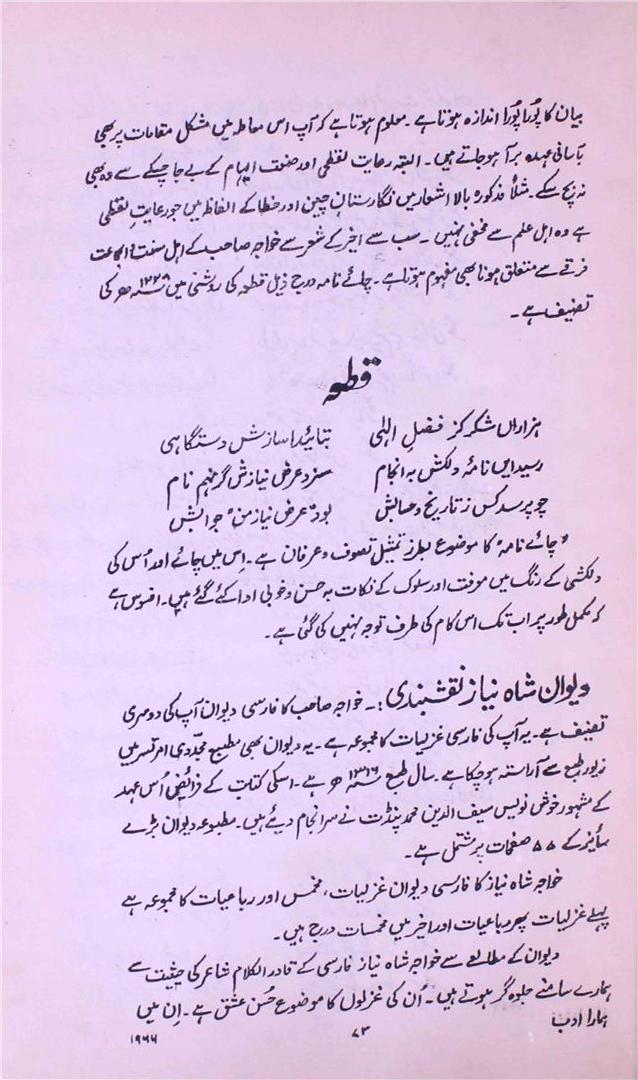 بیان کا پورا پورا اندازہ ہوتا ہے۔ معلوم ہوتا ہے کہ آپ اس معاملہ میں مشکل مقامات پر بھی
بآسانی عہدہ برآ ہو جاتے ہیں۔ البتہ رعایت لفظی اور صنعت ایہام کے بے جا چسکے سے وہ بھی
نہ بچ سکے۔ مثلاً مذکورہ بالا اشعار میں نگارستان چین اور خطا کے الفاظ میں جو رعایتِ لفظی
ہے وہ اہل علم سے مخفی نہیں۔ سب سے اخیر کے شعر سے خواجہ صاحب کے اہل سنت والجماعت
فرقے سے متعلق ہونا بھی مفہوم ہوتا ہے۔ چائے نامہ درج ذیل قطعہ کی روشنی میں ھ کی
تصنیف ہے۔
قطعہ
ہزاراں شکر کز فضلِ الٰہی بتائید سازش دستگاہی
رسید ایں نامۂ دلکش بہ انجام سزد عرض نیازش گر نہم نام
چو پرسد کس ز تاریخ وصالش بود "عرض نیاز من" جوابش
"چائے نامہ" کا موضوع بطرز تمثیل تصوف و عرفان ہے۔ اس میں چائے اور اُس کی
دلکشی کے رنگ میں معرفت اور سلوک کے نکات بہ حسن و خوبی ادا کئے گئے ہیں۔ افسوس ہے
کہ مکمل طور پر اب تک اس کام کی طرف توجہ نہیں کی گئی ہے۔
دیوان شاہ نیاز نقشبندی :۔ خواجہ صاحب کا فارسی دیوان آپ کی دوسری
تصنیف ہے۔ یہ آپ کی فارسی غزلیات کا مجموعہ ہے۔ یہ دیوان بھی مطبع مجددی امرتسر میں
زیور طبع سے آراستہ ہو چکا ہے۔ سال طبع ۱۳۱۶ ھ ہے۔ اسکی کتابت کے فرائض اُس عہد
کے مشہور خوش نویس سیف الدین محمد پنڈت نے سر انجام دیئے ہیں۔ مطبوعہ دیوان بڑے
سائیز کے ۵۵ صفحات پر مشتمل ہے۔
خواجہ شاہ نیاز کا فارسی دیوان غزلیات، مخمس اور رباعیات کا مجموعہ ہے
پہلے غزلیات پھر رباعیات اور اخیر میں مخمسات درج ہیں۔
دیوان کے مطالعے سے خواجہ شاہ نیاز فارسی کے قادر الکلام شاعر کی حیثیت سے
ہمارے سامنے جلوہ گر ہوتے ہیں۔ اُن کی غزلوں کا موضوع حُسن عشق ہے۔ اِن میں
ہمارا ادب
۷۳
۱۹۶۶